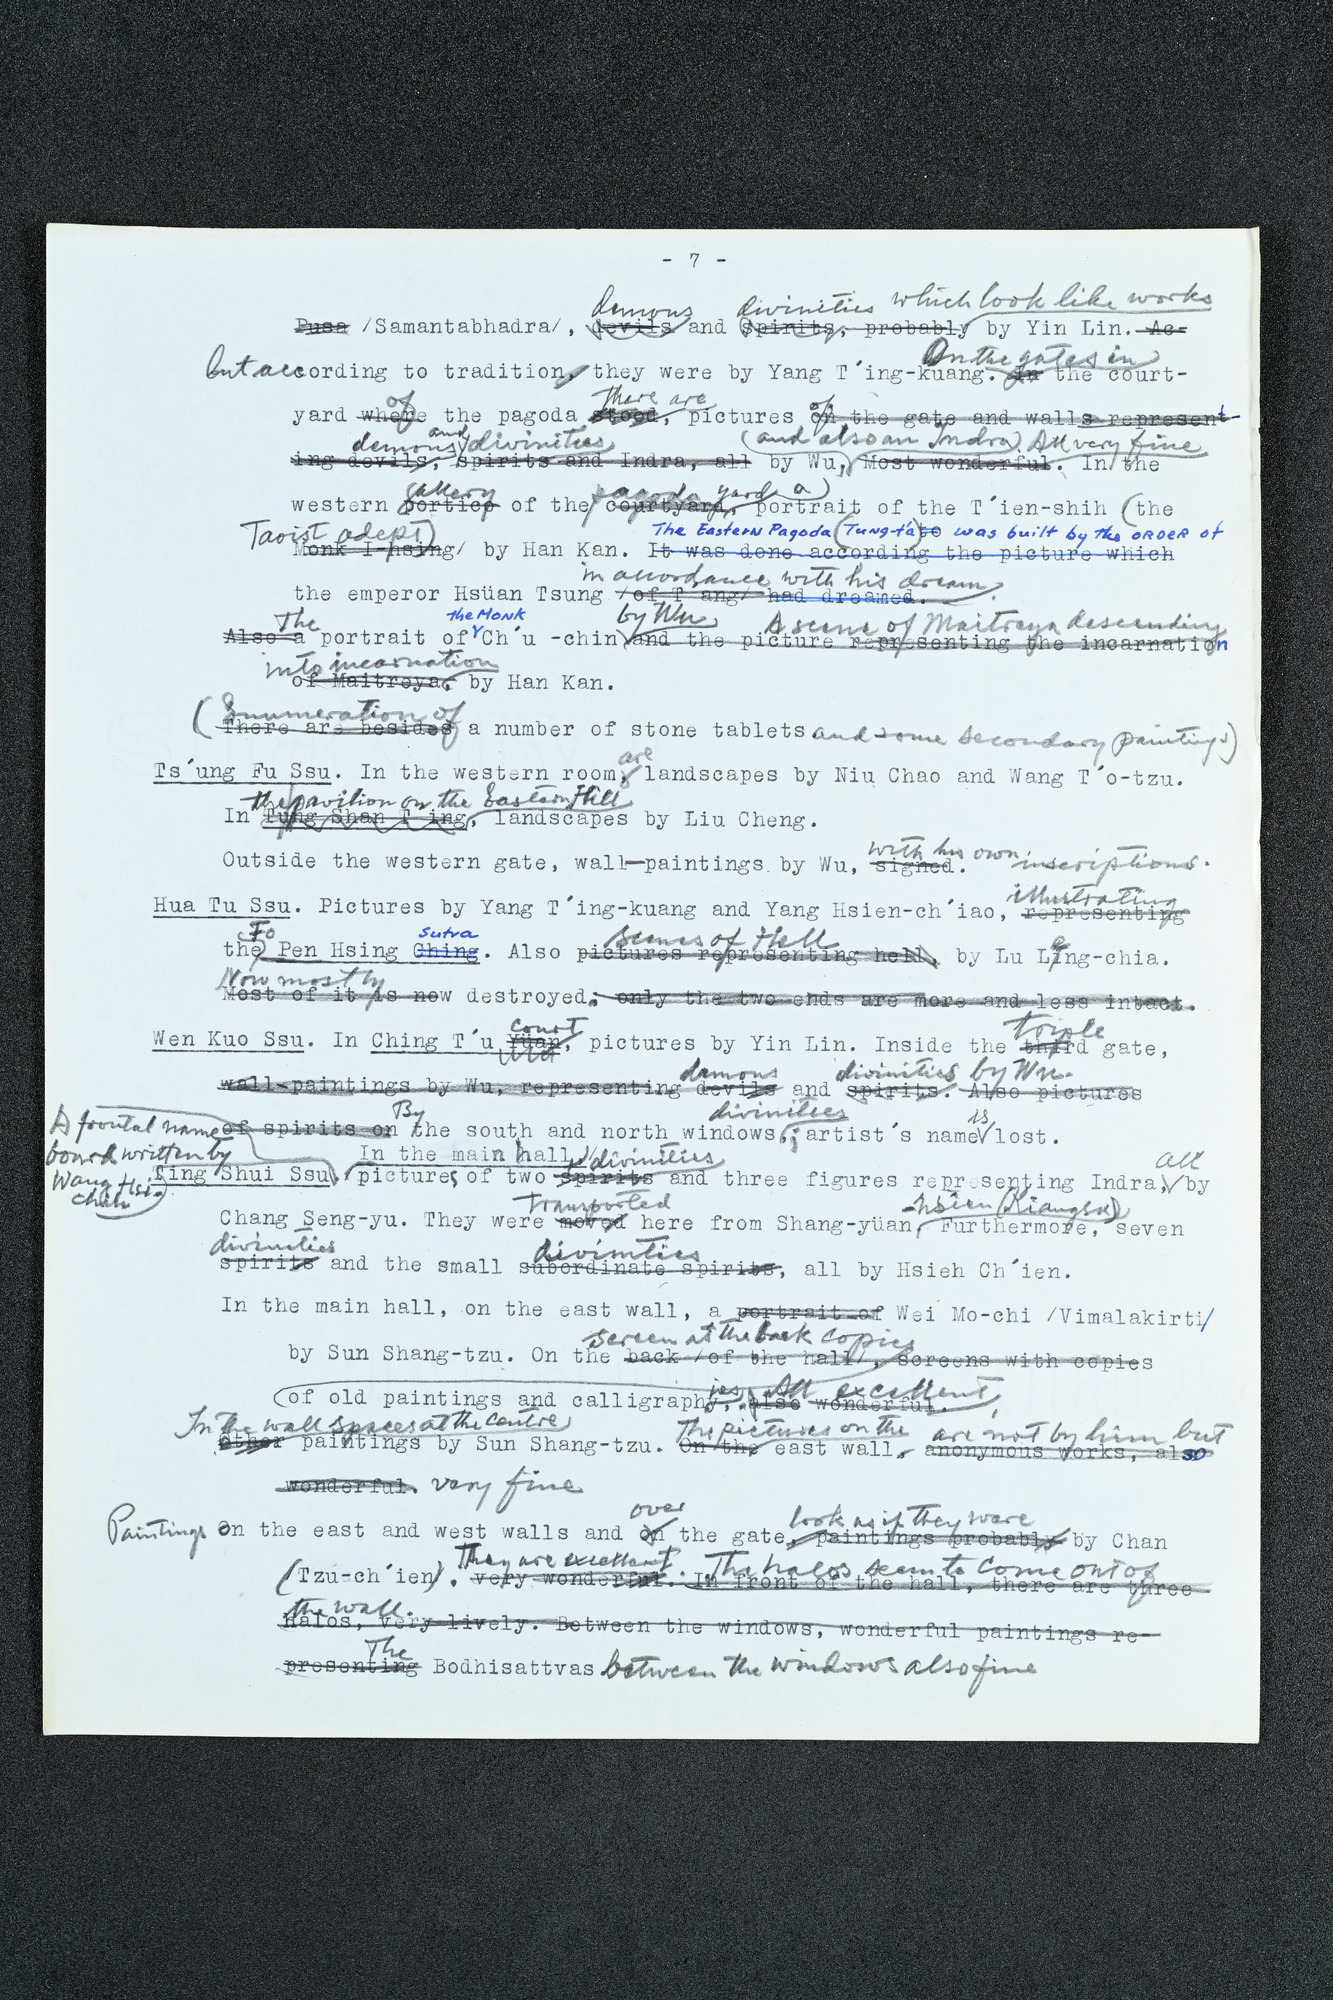 - 7 -
demons divinities which look like works
Pusa /Samantabhadra/, devils and Spirits, probably by Yin Lin. Ac-
On the gates in
but according to tradition, they were by Yang T´ing-kuang. In the court-
of There are of
yard where the pagoda stood, pictures on the gate and walls represent-
demons and divinities (and also an Indra) All very fine
ing devils, spirits and Indra, all by Wu, Most wonderful. In the
gallery pagoda yard a
western portico of the courtyard, portrait of the T´ien-shih (the
Taoist adept) The Eastern Pagoda (Tung-t'a) was built by the ORDER of
Monk I-hsing/ by Han Kan. It was done according the picture which
in accordance with his dream.
the emperor Hsüan Tsung /of T´ang/ had dreamed.
The the MONK by Wu A scene of Maitreya descending
Also a portrait of Ch´u -chin and the picture representing the incarnation
into incarnation
of Maitreya, by Han Kan.
(Enumeration of
There are besides a number of stone tablets and some secondary paintings)
are
Ts´ung Fu Ssu. In the western room, landscapes by Niu Chao and Wang T´o-tzu.
the pavilion on the Eastern Hill
In Tung Shan T´ing, landscapes by Liu Cheng.
with his own inscriptions.
Outside the western gate, wall-paintings by Wu, signed.
illustrating
Hua Tu Ssu. Pictures by Yang T´ing-kuang and Yang Hsien-ch´iao, representing
Fo Sutra scenes of Hell
the Pen Hsing Ching. Also pictures representing hell, by Lu Ling-chia.
Now mostly
Most of it is now destroyed; only the two ends are more and less intact.
court triple
Wen Kuo Ssu. In Ching T´u Yüan, pictures by Yin Lin. Inside the third gate,
demons divinities by Wu.
wall-paintings by Wu, representing devils and spirits. Also pictures
By divinities is
of spirits on the south and north windows; artist's name lost.
A frontal name board written by Wang Hsi-chih
In the main hall, divinities all
Ting Shui Ssu. pictures of two spirits and three figures representing Indra, by
transported -hsien (Kiangsu)
Chang Seng-yu. They were moved here from Shang-yüan, Furthermore, seven
divinities divinities
spirits and the small subordinate spirits, all by Hsieh Ch´ien.
In the main hall, on the east wall, a portrait of Wei Mo-chi /Vimalakirti/
screen at the back copies
by Sun Shang-tzu. On the back /of the hall/, screens with copies
ies. All excellent,
of old paintings and calligraphy. also wonderful.
In the wall spaces at the centre The pictures on the are not by him but
other paintings by Sun Shang-tzu. On the east wall, anonymous works, also
wonderful. very fine
over look as if they were
Paintings On the east and west walls and on the gate, paintings probably by Chan
They are excellent. The halos seem to come out of
(Tzu-ch´ien). very wonderful. In front of the hall, there are three
the wall.
halos, very lively. Between the windows, wonderful paintings re-
The
presenting Bodhisattvas between the windows also fine